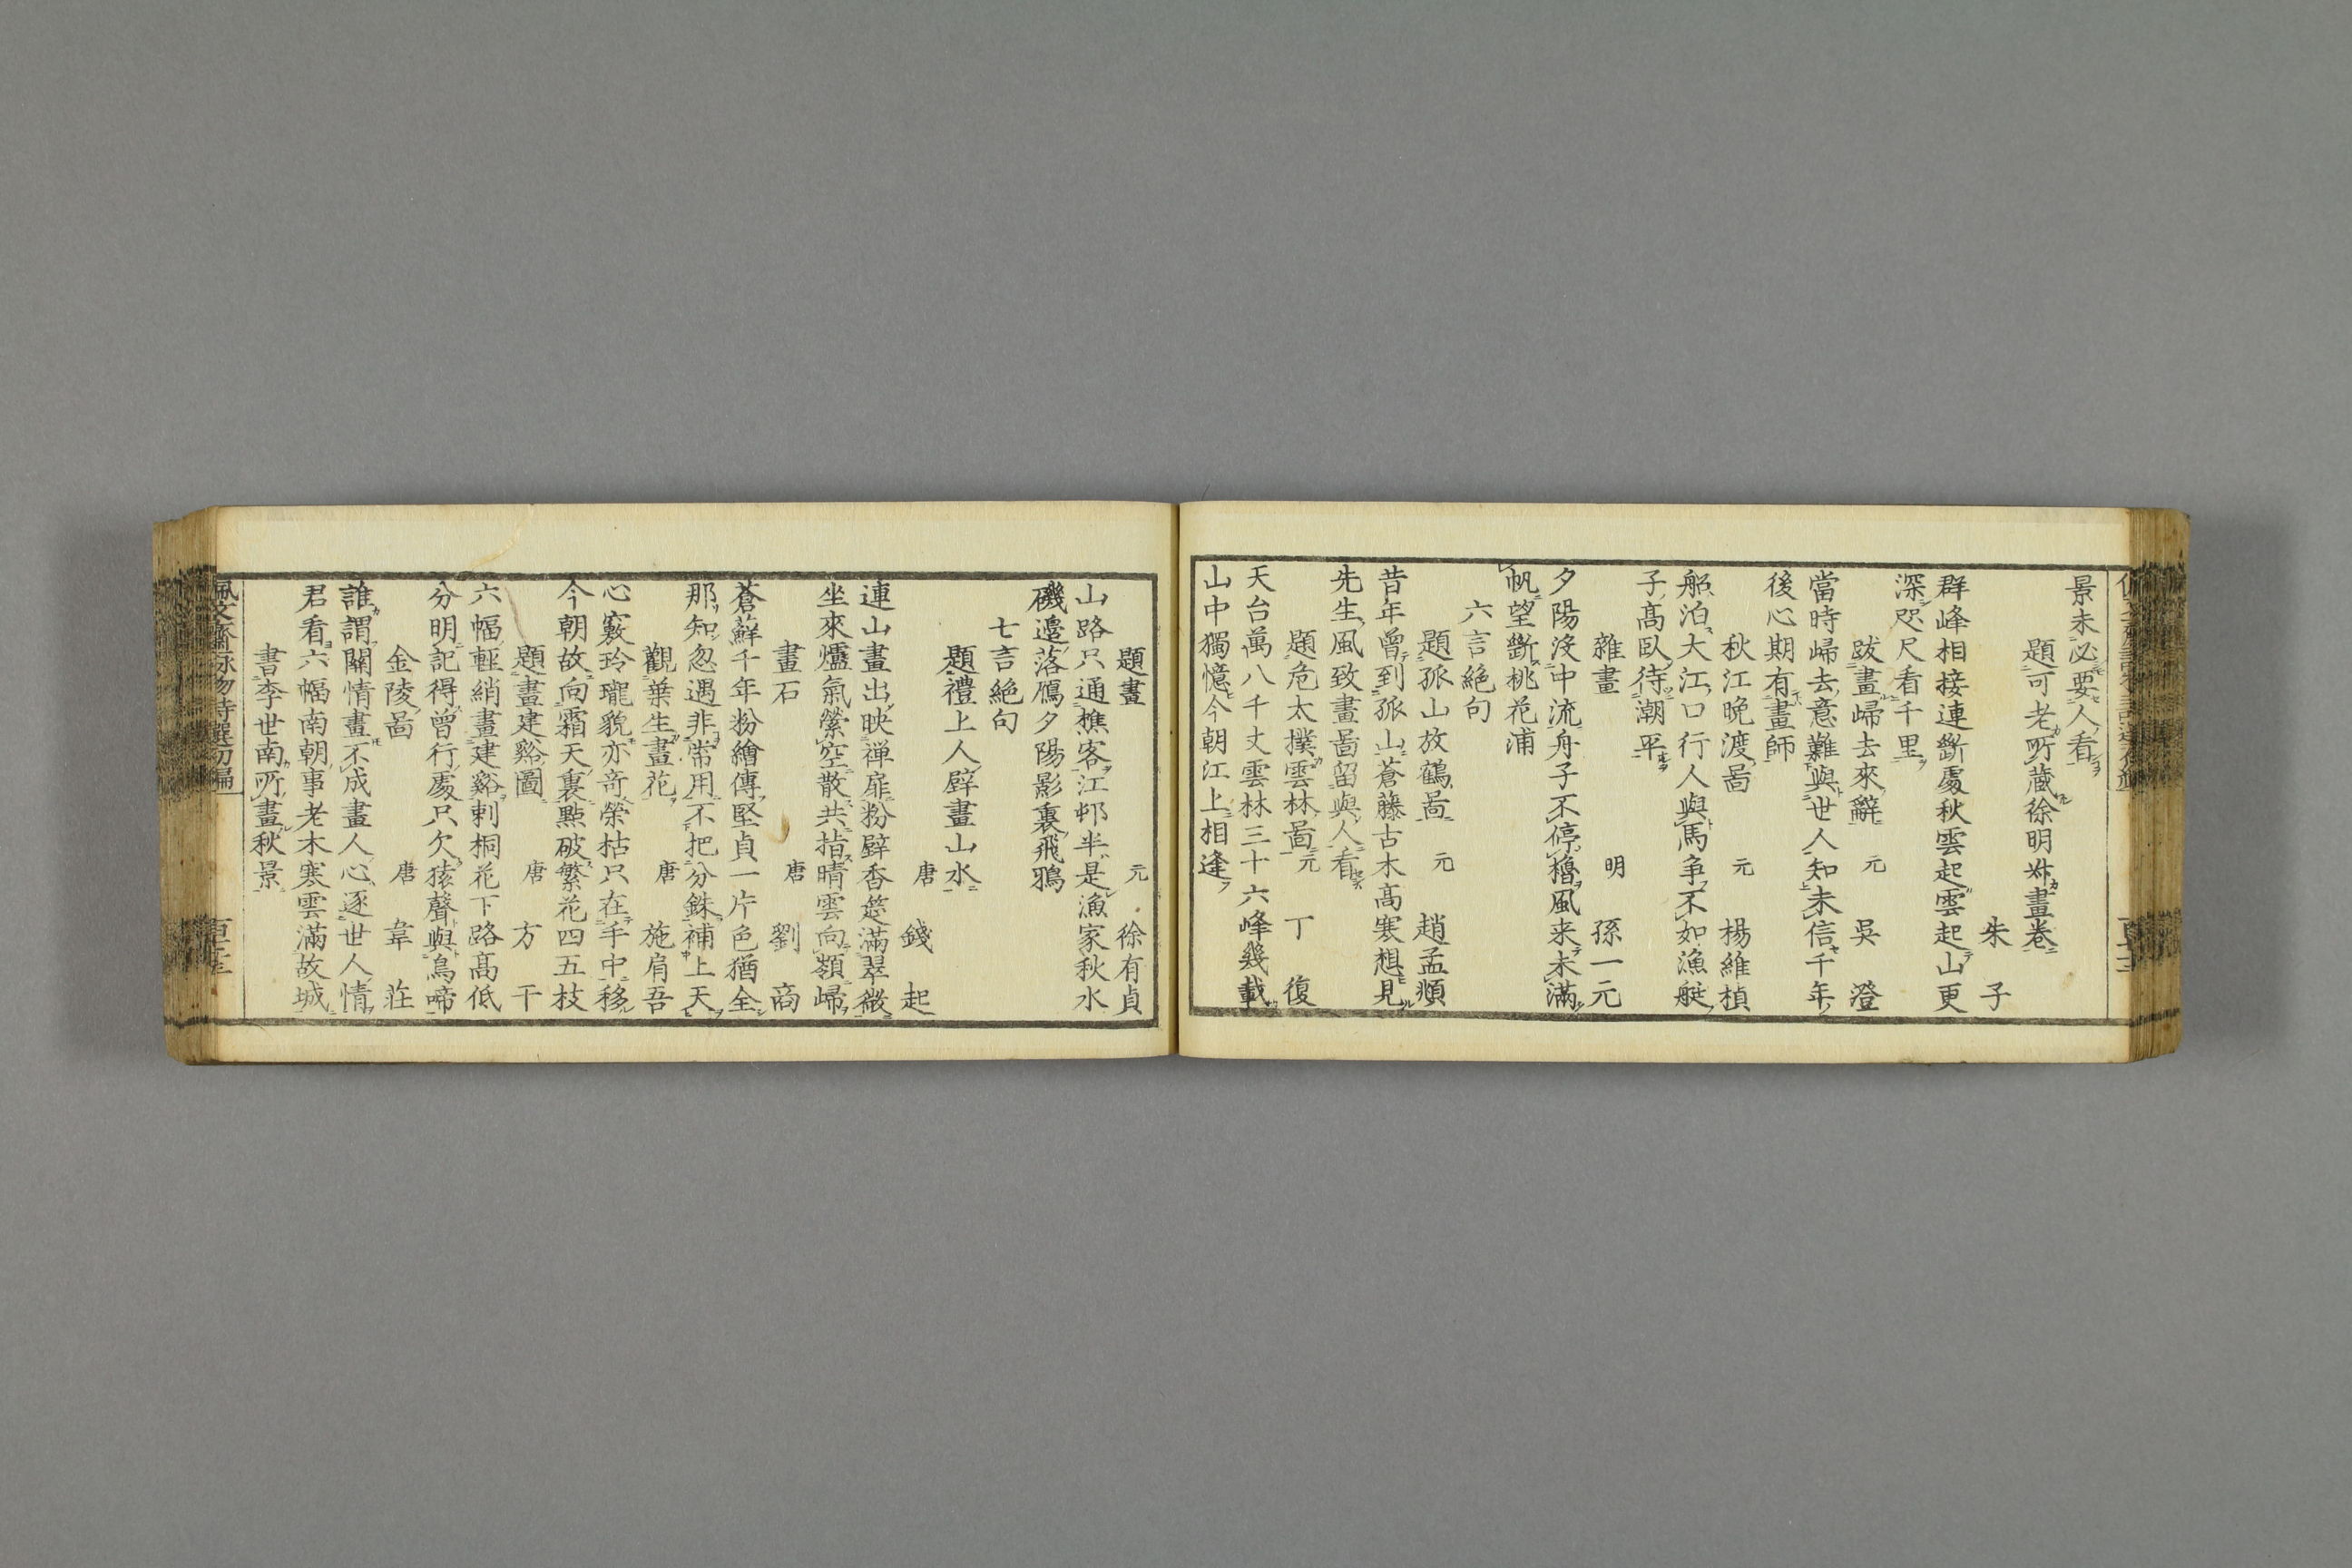 景未必要人看
題可老所藏徐明叔畫卷
朱子
群峰相接連斷處秋雲起雲起山更
深咫尺看千里
跋畫歸去來辭 元 吳澄
當時歸去意難與世人知未信千年
後心期有畫師
秋江晚渡啚 元 楊維楨
船泊大江口行人與馬争不如漁艇
子高臥待潮平
雜畫 明 孫一元
夕陽沒中流舟子不停櫓風来未滿
帆望斷桃花浦
六言絕句
題孤山放鶴啚 元 趙孟頫
昔年曾到孤山蒼藤古木高寒想見
先生風致畫啚留與人看
題危太撲雲林啚 元 丁復
天台萬八千丈雲林三十六峰幾載
山中獨憶今朝江上相逢
題畫 元 徐有貞
山路只通樵客江邨半是漁家秋水
磯邊落鴈夕陽影裏飛鴉
七言絕句
題禮上人壁畫山水
唐 錢起
連山畫出映禅扉粉壁香筵滿翠微
坐來爐氣縈空散共指晴雲向嶺歸
畫石 唐 劉商
蒼蘚千年粉繪傳堅貞一片色猶全
那知忽遇非常用不把分銖補上天
觀葉生畫花 唐 施肩吾
心竅玲瓏貌亦奇榮枯只在手中移
今朝故向霜天裏點破繁花四五枝
題畫建谿圖 唐 方干
六幅輕綃畫建谿刺桐花下路高低
分明記得曾行處只欠猿聲與鳥啼
金陵啚 唐 韋莊
誰謂關情畫不成畫人心逐世人情
君看六幅南朝事老木寒雲滿故城
書李世南所畫秋景
佩文齋詠物詩選初編